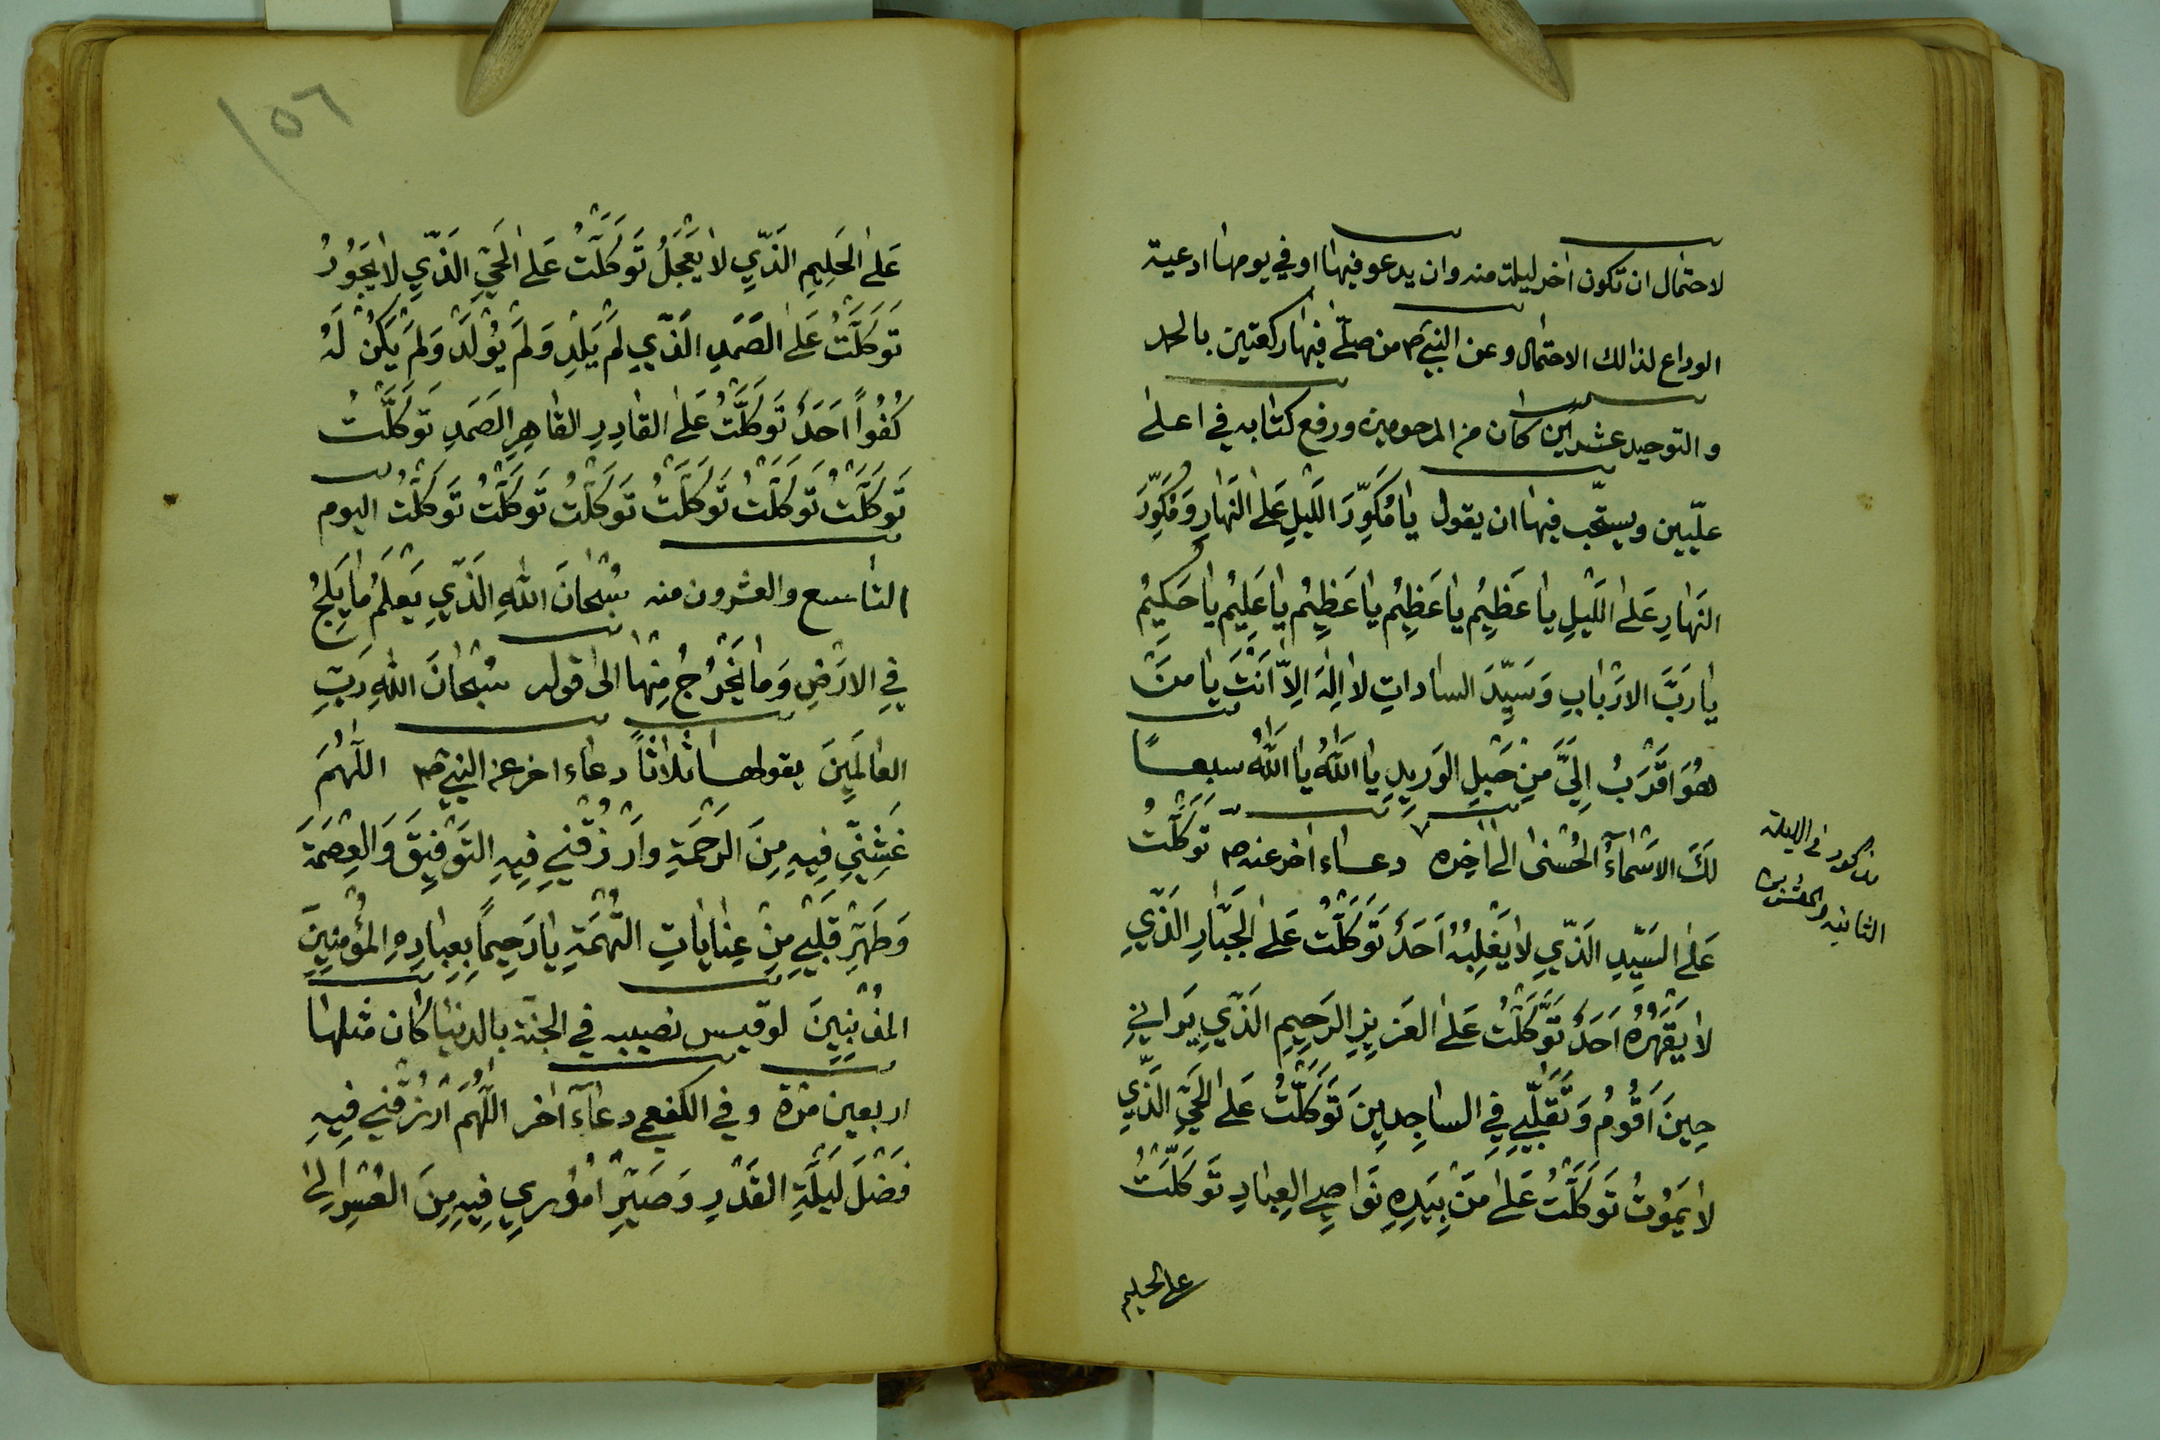 لاحتمال ان تكون اخر ليلة منه وان يدعو فيها او في يومها ادعية
الوداع لذالك الاحتمال وعن النبي ص من صلّٰى فيها ركعتين بالحمد
والتوحيد عشرين كان من المرحومين ورفع كتابه في اعلى
علّيين ويستحّب فيها ان يقول يا مُكَوِّرَ اللَّيلِ عَلَى النَهارِ وَمُكَوِّرَ
النَهارِ عَلىٰ اللَّيلِ يا عَظيمُ يا عَظيمُ يا عَظيمُ يا عَليمُ يا حَكيمُ
يا رَبَّ الارَبابِ وَسَيِّدَ الساداتِ لا اِلٰهَ اِلاّ اَنتَ يا مَنْ
هُوَ اَقرَبُ اِلَيَّ مِنْ حَبْلِ الوَريدِ يا اَللهُ يا اَللهُ سبعاً
لَكَ الاسْماءُ الحُسْنى الى اخره دعاء اخر عنه ص تَوَكَّلْتُ
عَلىٰ السَيِّدِ الَذّي لا يَغْلِبُهُ اَحَدٌ تَوَكَّلْتُ عَلى الجَبّارِ الَذّي
لا يَقْهَرُهُ اَحَدٌ تَوَكَّلْتُ عَلى العَزيزِ الرَحيمِ الَذّي يَراني
حينَ اَقُومُ وَتَقَلُّبي فِي الساجِدينَ تَوَكَّلْتُ عَلى الحَيِّ الَّذي
لا يَمُوْتُ تَوَكَّلْتُ عَلىٰ مَنْ بِيَدِهِ نَواصِي العِبادِ تَوَكَّلْتُ
على الحليم
مذكور في الليلة
الثانية والعشرين
١٥٦
عَلى الحَليمِ الَذّي لا يَعْجَلُ تَوَكَّلْتُ عَلى الحَيِّ الَذّي لا يَجُوْرُ
تَوَكَّلْتُ عَلىٰ الصَّمَدِ الَذّي لَمْ يَلِدْ وَلَمْ يُوْلَدْ وَلَمْ يَكُنْ لَهُ
كُفُواً اَحَدٌ تَوَكَّلْتُ عَلىٰ القادِرِ القاهِرِ الصَمَدِ تَوَكَّلْتُ
تَوَكَّلْتُ تَوَكَّلْتُ تَوَكَّلْتُ تَوَكَّلْتُ تَوَكَّلْتُ تَوَكَّلْتُ اليوم
التاسع والعشرون منه سُبْحانَ اللهِ الَذّي يَعْلَمُ ما يَلِجُ
فِي الارَضِ وَما يَخْرُجُ مِنْها الى قوله سُبْحانَ اللهِ رَبِّ
العالَمينَ يقولها ثلاثاً دعاء اخر عن النبي ص اللّهُمَّ
غَشِّني فِيهِ مِنَ الرَحْمَةِ وارْزُقْني فِيهِ التَوْفيقَ وَالعِصْمَةَ
وَطَهِّرْ قَلْبي مِنْ عِناياتِ التُهَمَةِ يا رَحيماً بِعِبادِهِ المُؤْمِنينَ
المذْنِبينَ لو قيس نصيبه في الجنة بالدنيا كان مثلها
اربعين مرّة وفي الكفعمي دعآء اخر اَللّهُمَّ ارْزُقْني فِيهِ
فَضْلَ لَيْلَةِ القَدْرِ وَصَيِّرْ اُمُوري فِيهِ مِنَ العُسْرِ اِلىٰ